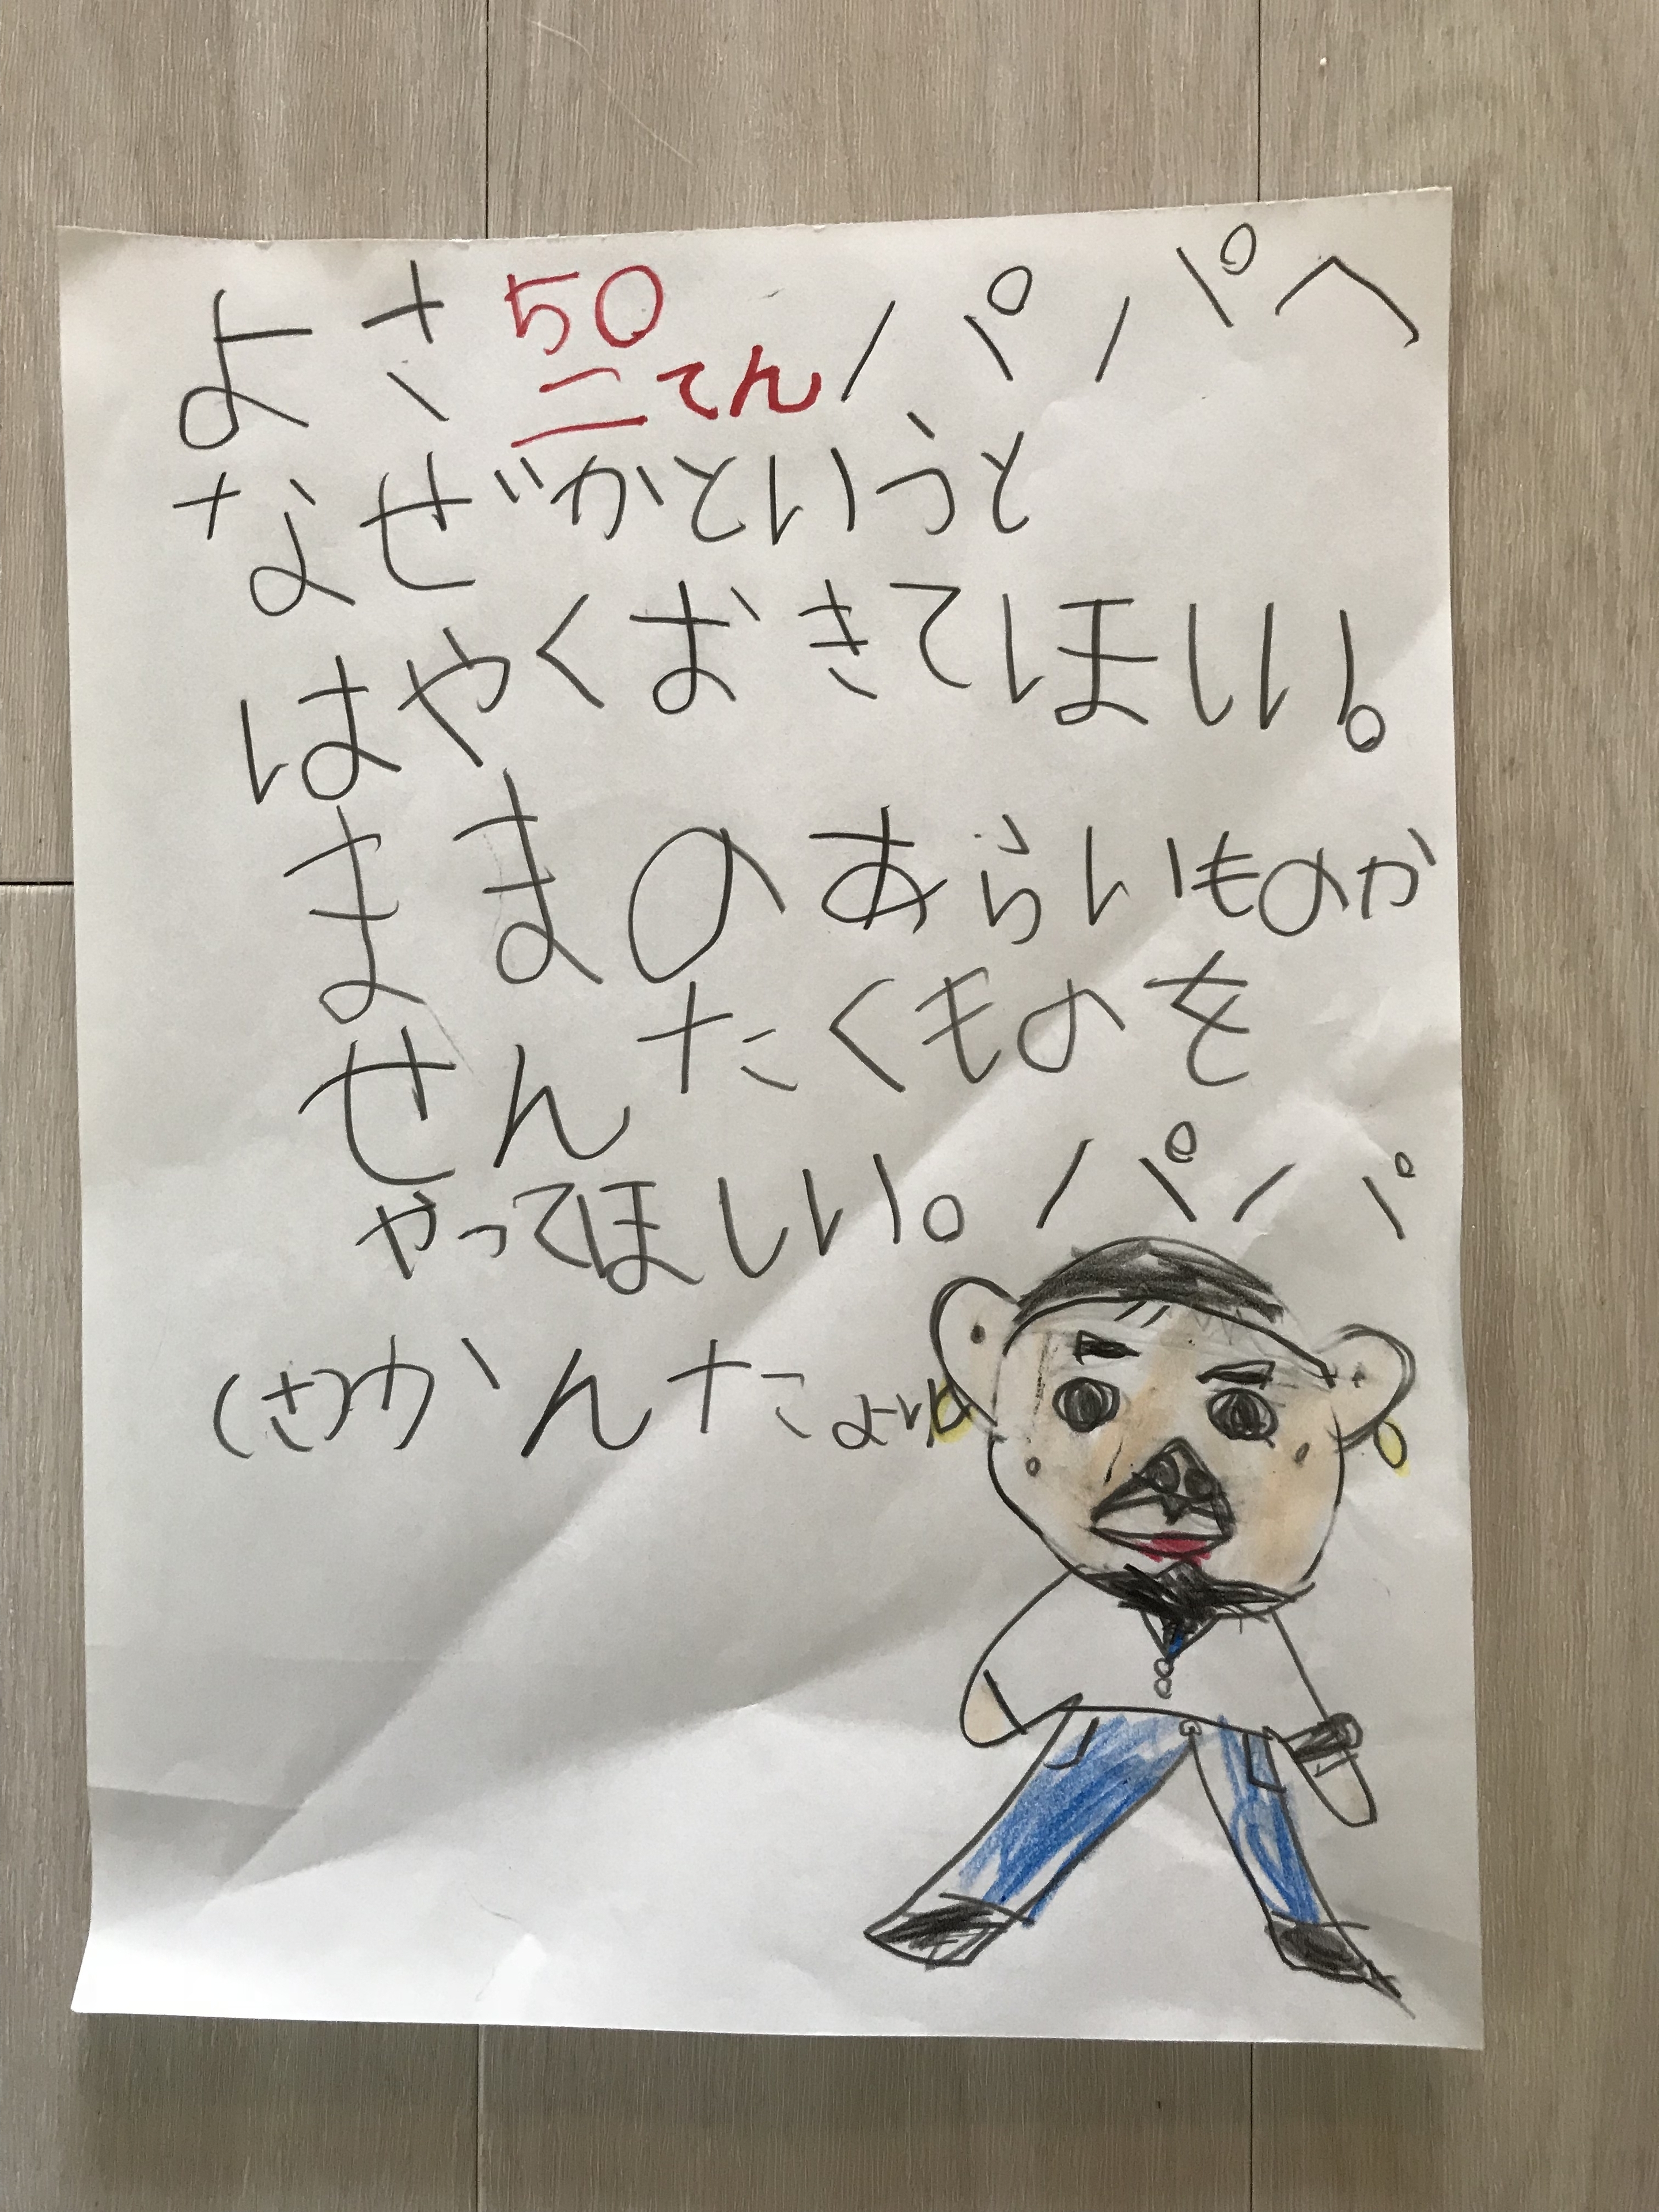 よさ50てんパパへ
なぜかというと
はやくおきてほしい。
ままのあらいものか
せんたくものを
やってほしい。パパ
(さ)かんたより